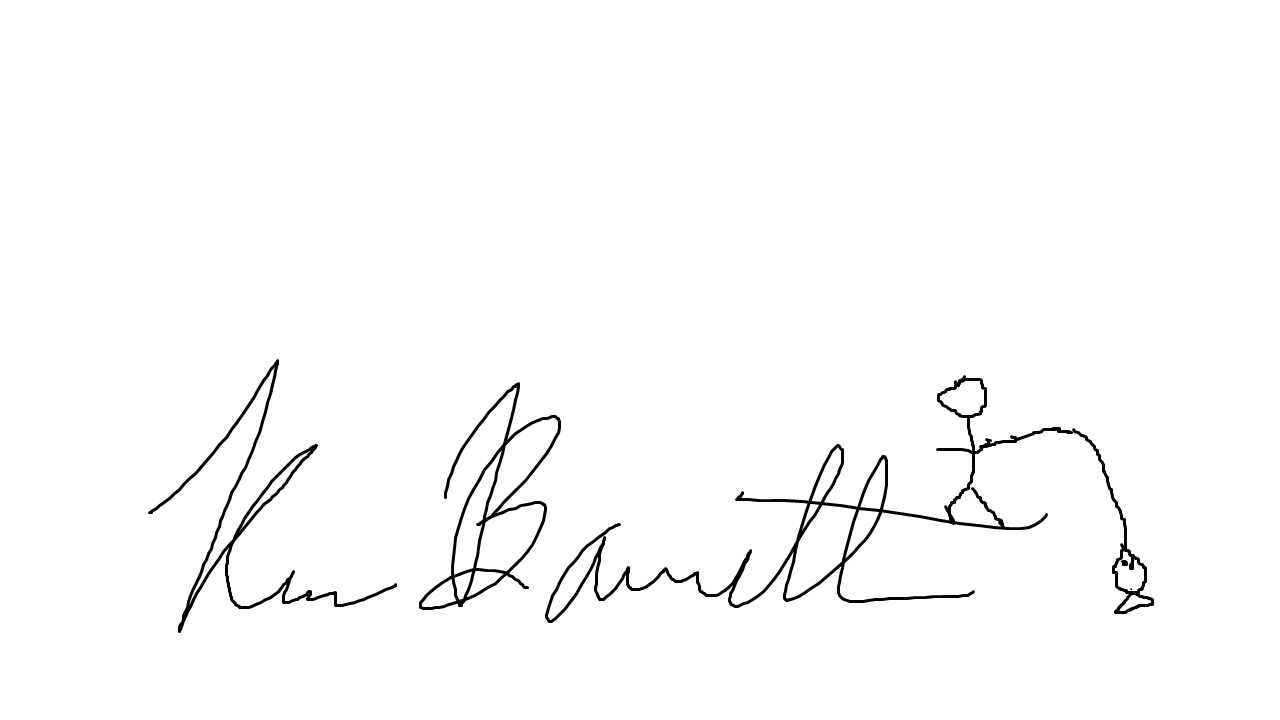 Ken Barrett